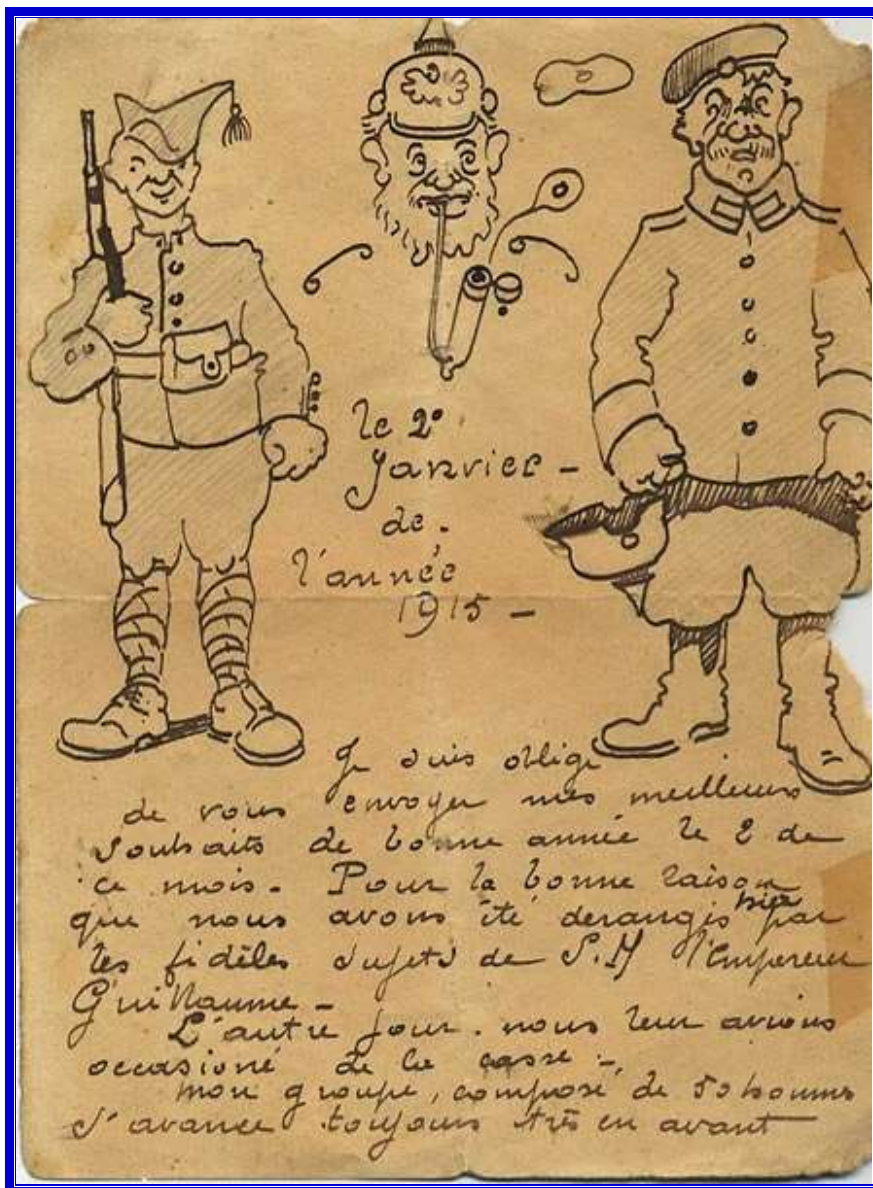 le 2º
Janvier -
de.
l'année
1915 -
Je suis oblige
de vous envoyer mes meilleurs
souhaits de bonne année le 2 de
ce mois. Pour la bonne raison
que nous avons été derangés hier par
les fidèles sujets de S.M l'Empereur
Guillaume -
L'autre jour. nous leur avions
occasioné de la casse -
mon groupe, composé de 50 hommes
s'avance toujours très en avant